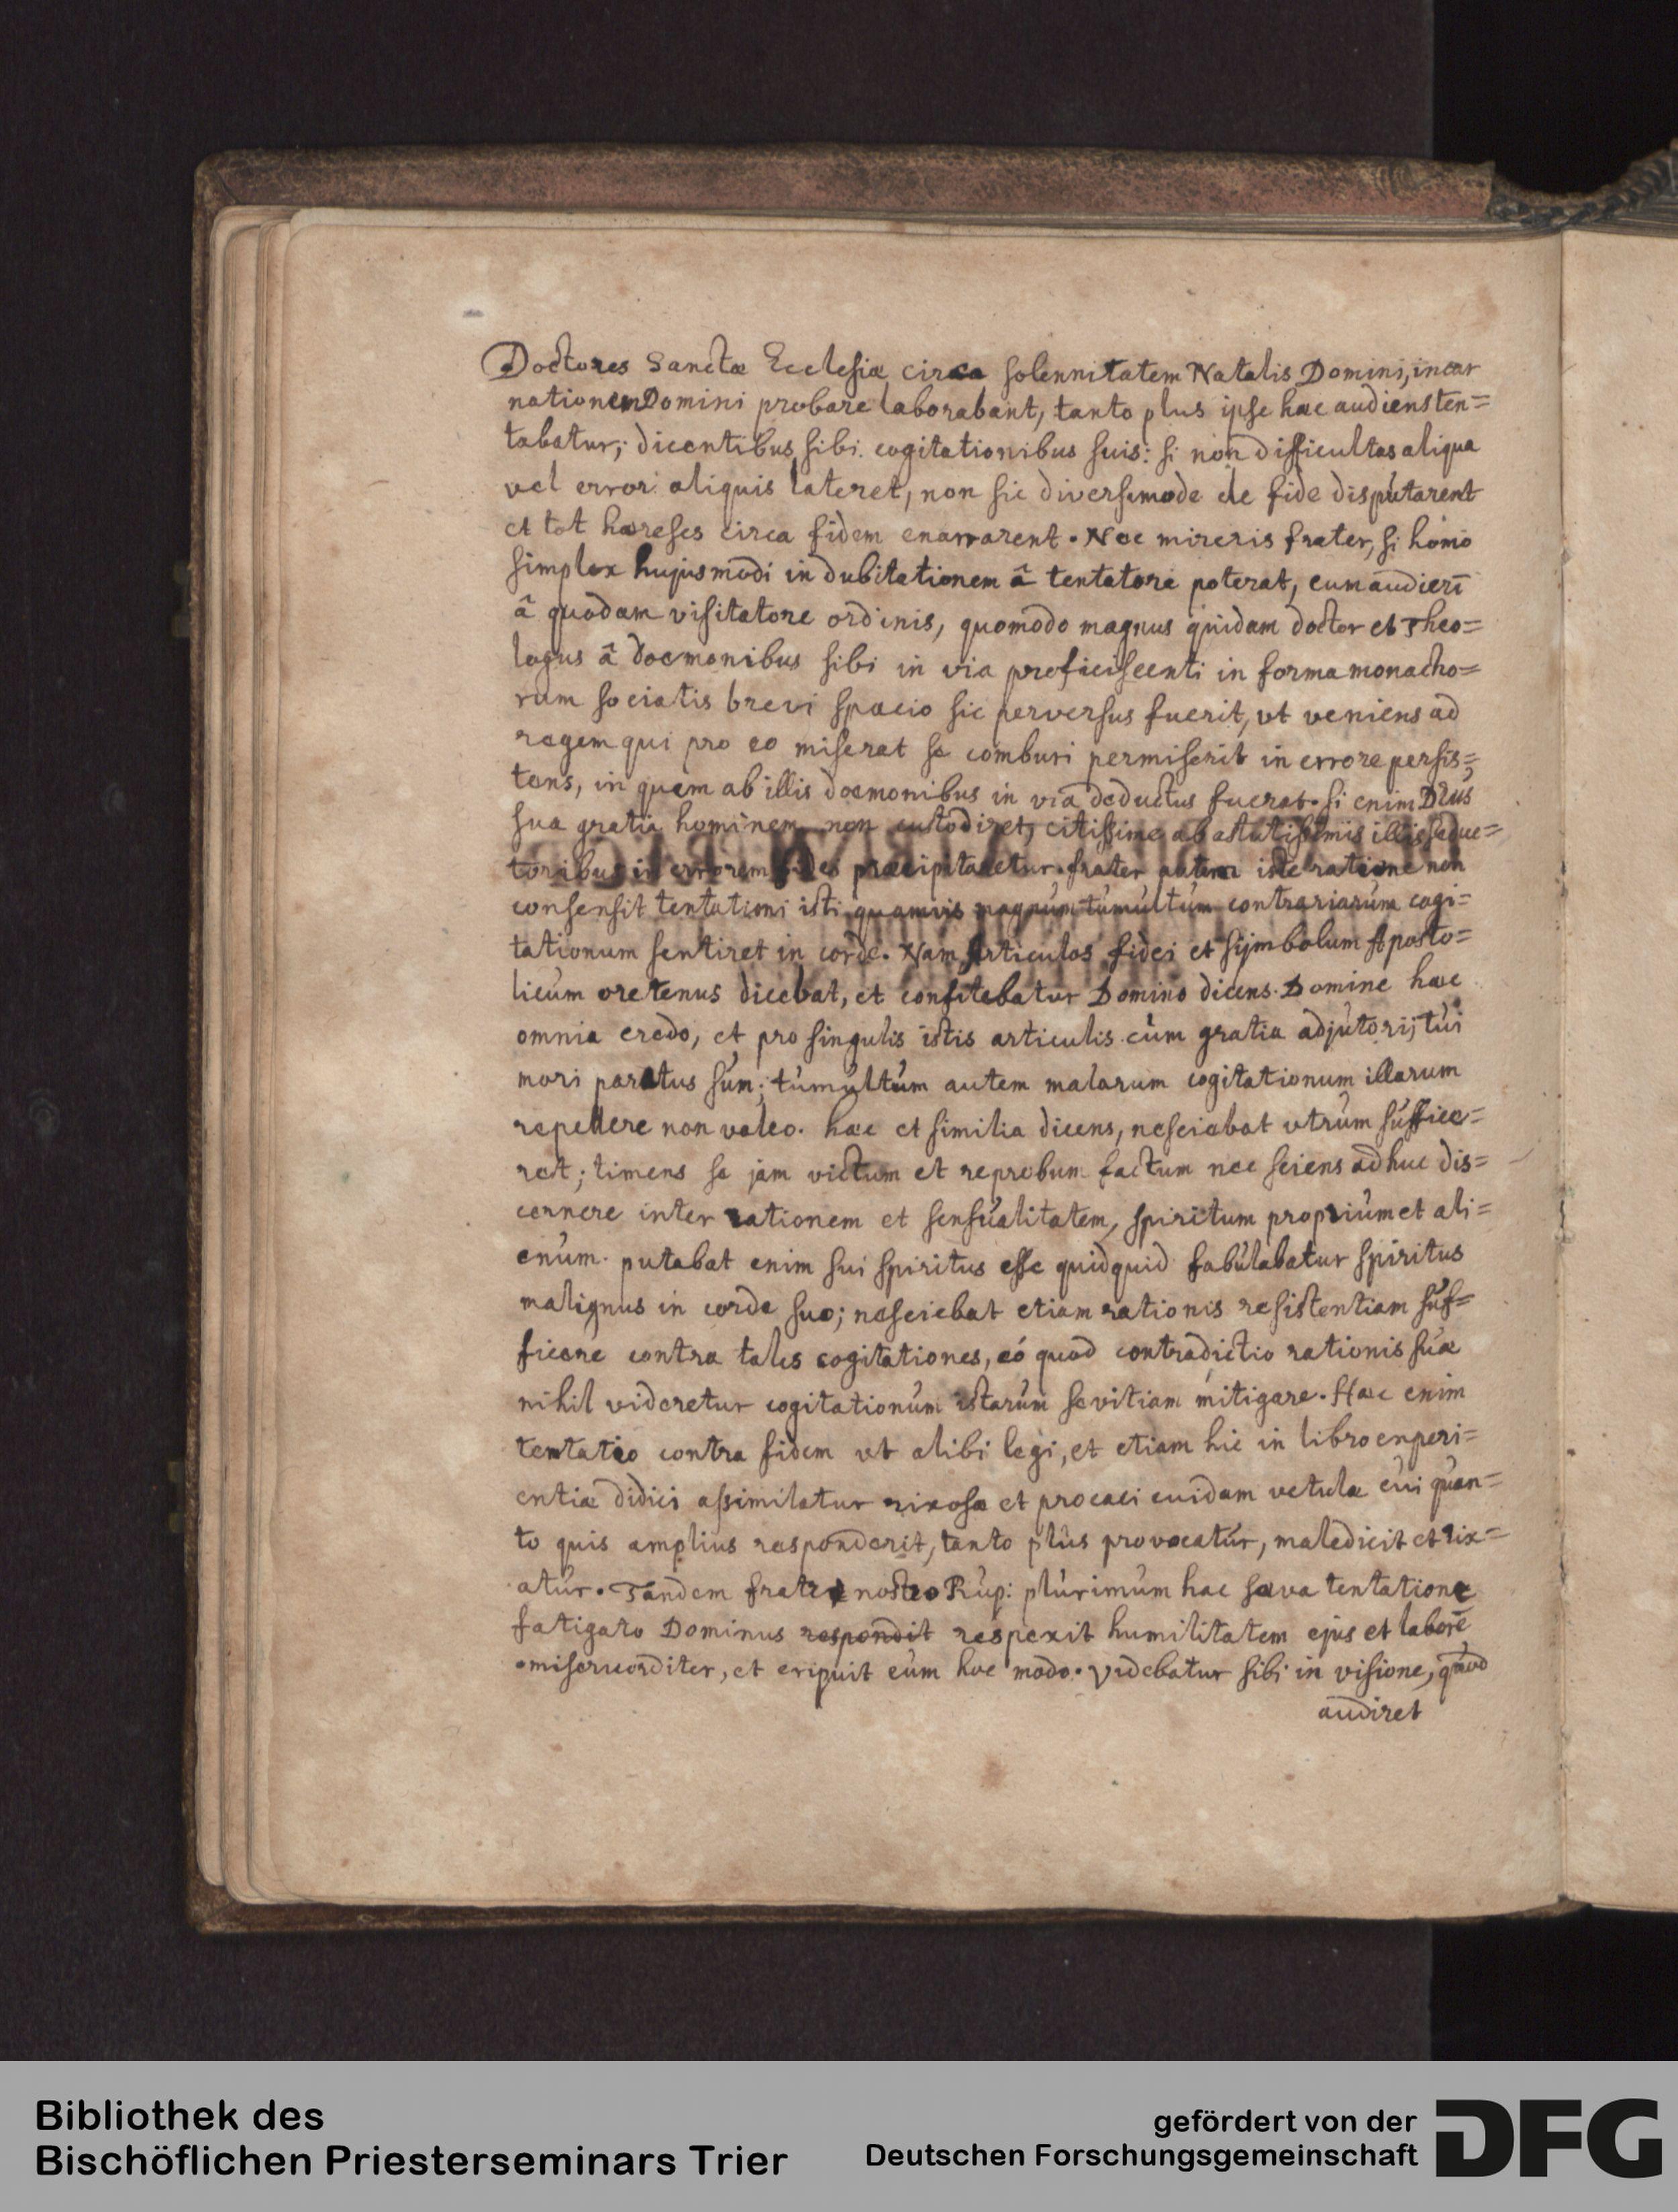 Doctores Sanctæ Ecclesiæ circa solennitatem Natalis Domini, incar
nationem Domini probare laborabant, tanto plus ipse hæc audiens ten=
tabatur; dicentibus sibi cogitationibus suis: si non difficultas aliqua
vel error aliquis lateret, non sic diversimode de fide disputarent
et tot hæreses circa fidem enarrarent. Nec mireris frater, si homo
simplex hujusmodi in dubitationem â tentatore poterat, cum audierī
â quodam visitatore ordinis, quomodo magnus quidam doctor et Theo=
logus â dæmonibus sibi in via proficiscenti in forma monacho=
rum sociatis brevi spacio sic perversus fuerit, vt veniens ad
regem qui pro eo miserat se comburi permiserit in errore persis=
tens, in quem ab illis dæmonibus in via deductus fuerat. si enim D̄nus
sua gratia hominem non custodiret, citissime ab astutissimis illis seduc=
toribus in errorem fidei præcipitaretur. frater autem iste ratione non
consensit tentationi isti quamvis magnum tumultum contrariarum cogi=
tationum sentiret in corde. Nam Articulos fidei et sijmbolum Aposto=
licum oretenus dicebat, et confitebatur Domino dicens. Domine hæc
omnia credo, et pro singulis istis articulis cum gratia adjutorij tui
mori paratus sum; tumultum autem malarum cogitationum illarum
repellere non valeo. hæc et similia dicens, nesciebat vtrum suffice=
ret; timens se jam victum et reprobum factum nec sciens adhuc dis=
cernere inter rationem et sensualitatem, spiritum proprium et ali=
enum. putabat enim sui spiritus esse quidquid fabulabatur spiritus
malignus in corde suo; nesciebat etiam rationis resistentiam suf=
ficere contra tales cogitationes, eó quod contradictio rationis suæ
nihil videretur cogitationum istarum sevitiam mitigare. Hæc enim
tentatio contra fidem vt alibi legi, et etiam hic in libro enperi=
entiæ didici assimilatur rixosæ et procaci cuidam vetulæ cui quan=
to quis amplius responderit, tanto plus provocatur, maledicit et rix=
atur. Tandem fratre nostro Rup: plurimum hac sæva tentatione
fatigato Dominus respondit respexit humilitatem ejus et laborē
misericorditer, et eripuit eum hoc modo. videbatur sibi in visione, quod
audiret
Bibliothek des
Bischöflichen Priesterseminars Trier
gefördert von der
Deutschen Forschungsgemeinschaft
DFG